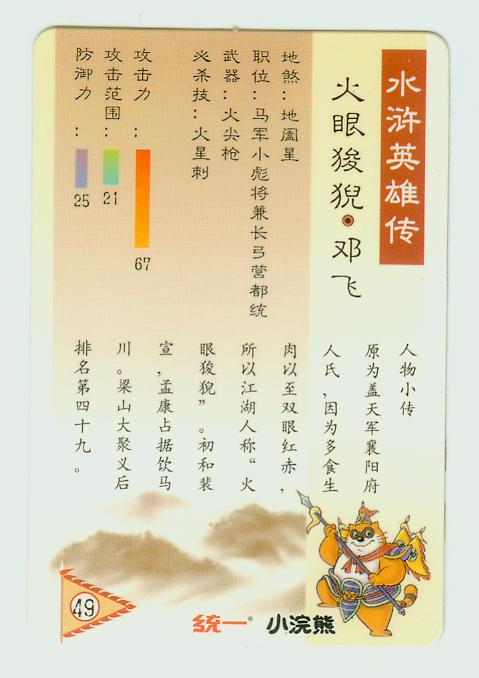 水浒英雄传
火眼狻猊●邓飞
地煞：地阖星
职位：马军小彪将兼长弓营都统
武器：火尖枪
必杀技：火星刺
攻击力：
67
攻击范围：
21
防御力：
25
人物小传
原为盖天军襄阳府
人氏，因为多食生
肉以至双眼红赤，
所以江湖人称“火
眼狻猊”。初和裴
宣，孟康占据饮马
川。梁山大聚义后
排名第四十九。
49
统一® 小浣熊